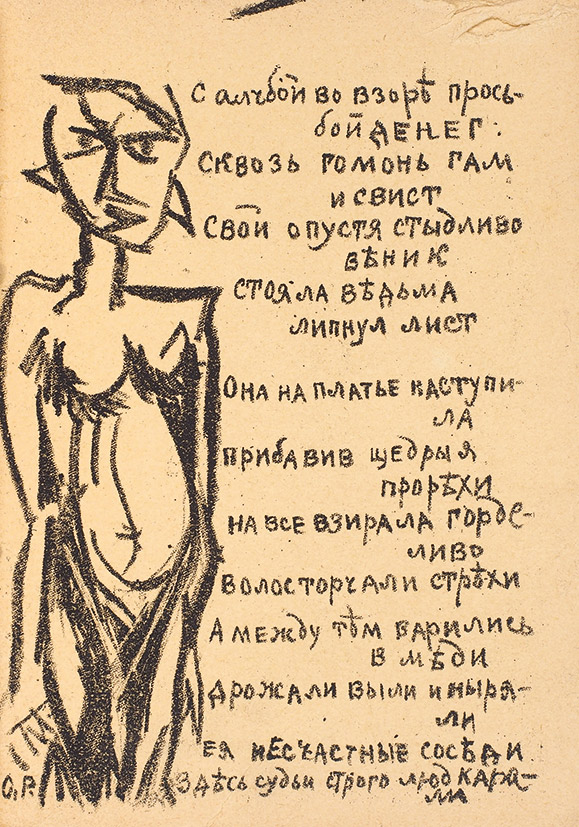 С алчбой во взорѣ прось-
бой ДЕНЕГ:
СКВОЗЬ ГОМОНЬ ГАМ
И СВИСТ
СВОЙ ОПУСТЯ СТЫДЛИВО
ВѢНИК
СТОЯЛА ВѢДЬМА
ЛИПНУЛ ЛИСТ
ОНА НА ПЛАТЬЕ НАСТУПИ-
ЛА
ПРИБАВИВ ЩЕДРЫЯ
ПРОРѢХИ
НА ВСЕ ВЗИРАЛА ГОРДЕ-
ЛИВО
ВОЛОС ТОРЧАЛИ СТРѢХИ
А МЕЖДУ ТѢМ ВАРИЛИСЬ
В МѢДИ
ДРОЖАЛИ ВЫЛИ И НЫРЯ-
ЛИ
ЕЯ НЕСЧАСТНЫЕ СОСѢДИ
ЗДѢСЬ СУДЬИ СТРОГО ЛЮД КАРА-
ЛА
О.Р.